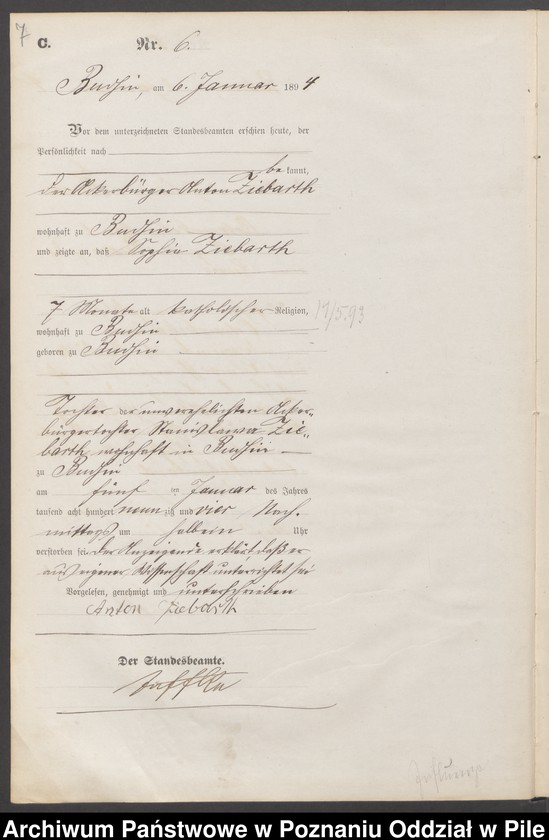 7
C. Nr. 6.
Budsin, am 6. Januar 1894
Vor dem unterzeichneten Standesbeamten erschien heute, der
Persönlichkeit nach
bekannt,
der Ackerbürger Anton Ziebarth
wohnhaft zu Budsin
und zeigte an, daß Sophia Ziebarth
7 Monate alt katholischer Religion, 19/5.93
wohnhaft zu Budsin
geboren zu Budsin
Tochter der unverehelichten Acker„
bürgertochter Stanislawa Zie„
barth wohnhaft in Budsin
zu Budsin
am fünf ten Januar des Jahres
tausend acht hundert neunzig und vier Nach„
mittags um halb ein Uhr
verstorben sei. Der Anzeigende erklärt, daß er
aus eigener Wissenschaft unterrichtet sei
Vorgelesen, genehmigt und unterschrieben
Anton Ziebarth
Der Standesbeamte.
Archiwum Państwowe w Poznaniu Oddział w Pile